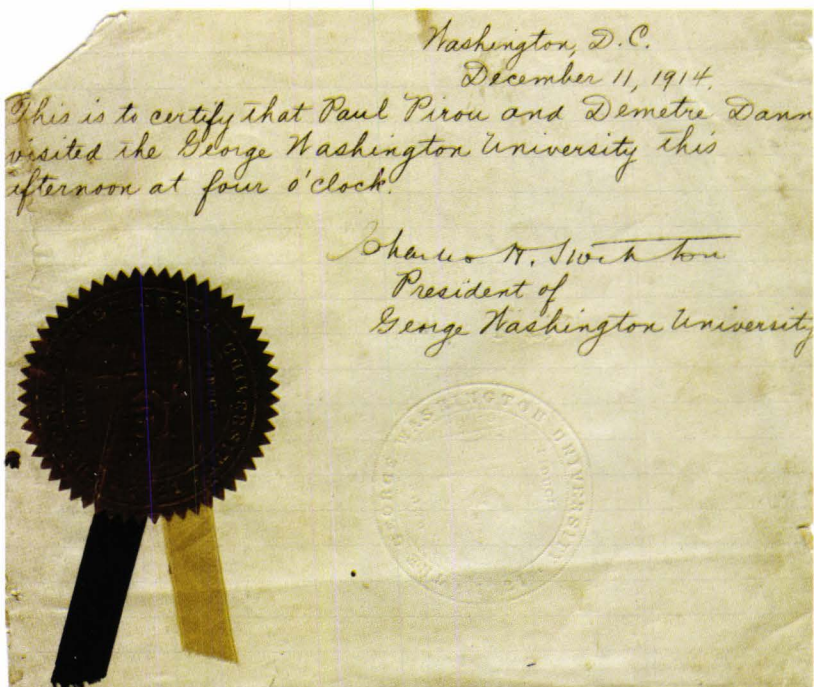 Washington, D.C.
December 11, 1914.
This is to certify that Paul Pirou and Demetre Dann
visited the George Washington University this
afternoon at four o'clock.
Charles H. Stockton
President of
George Washington University
THE GEORGE WASHINGTON UNIVERSITY